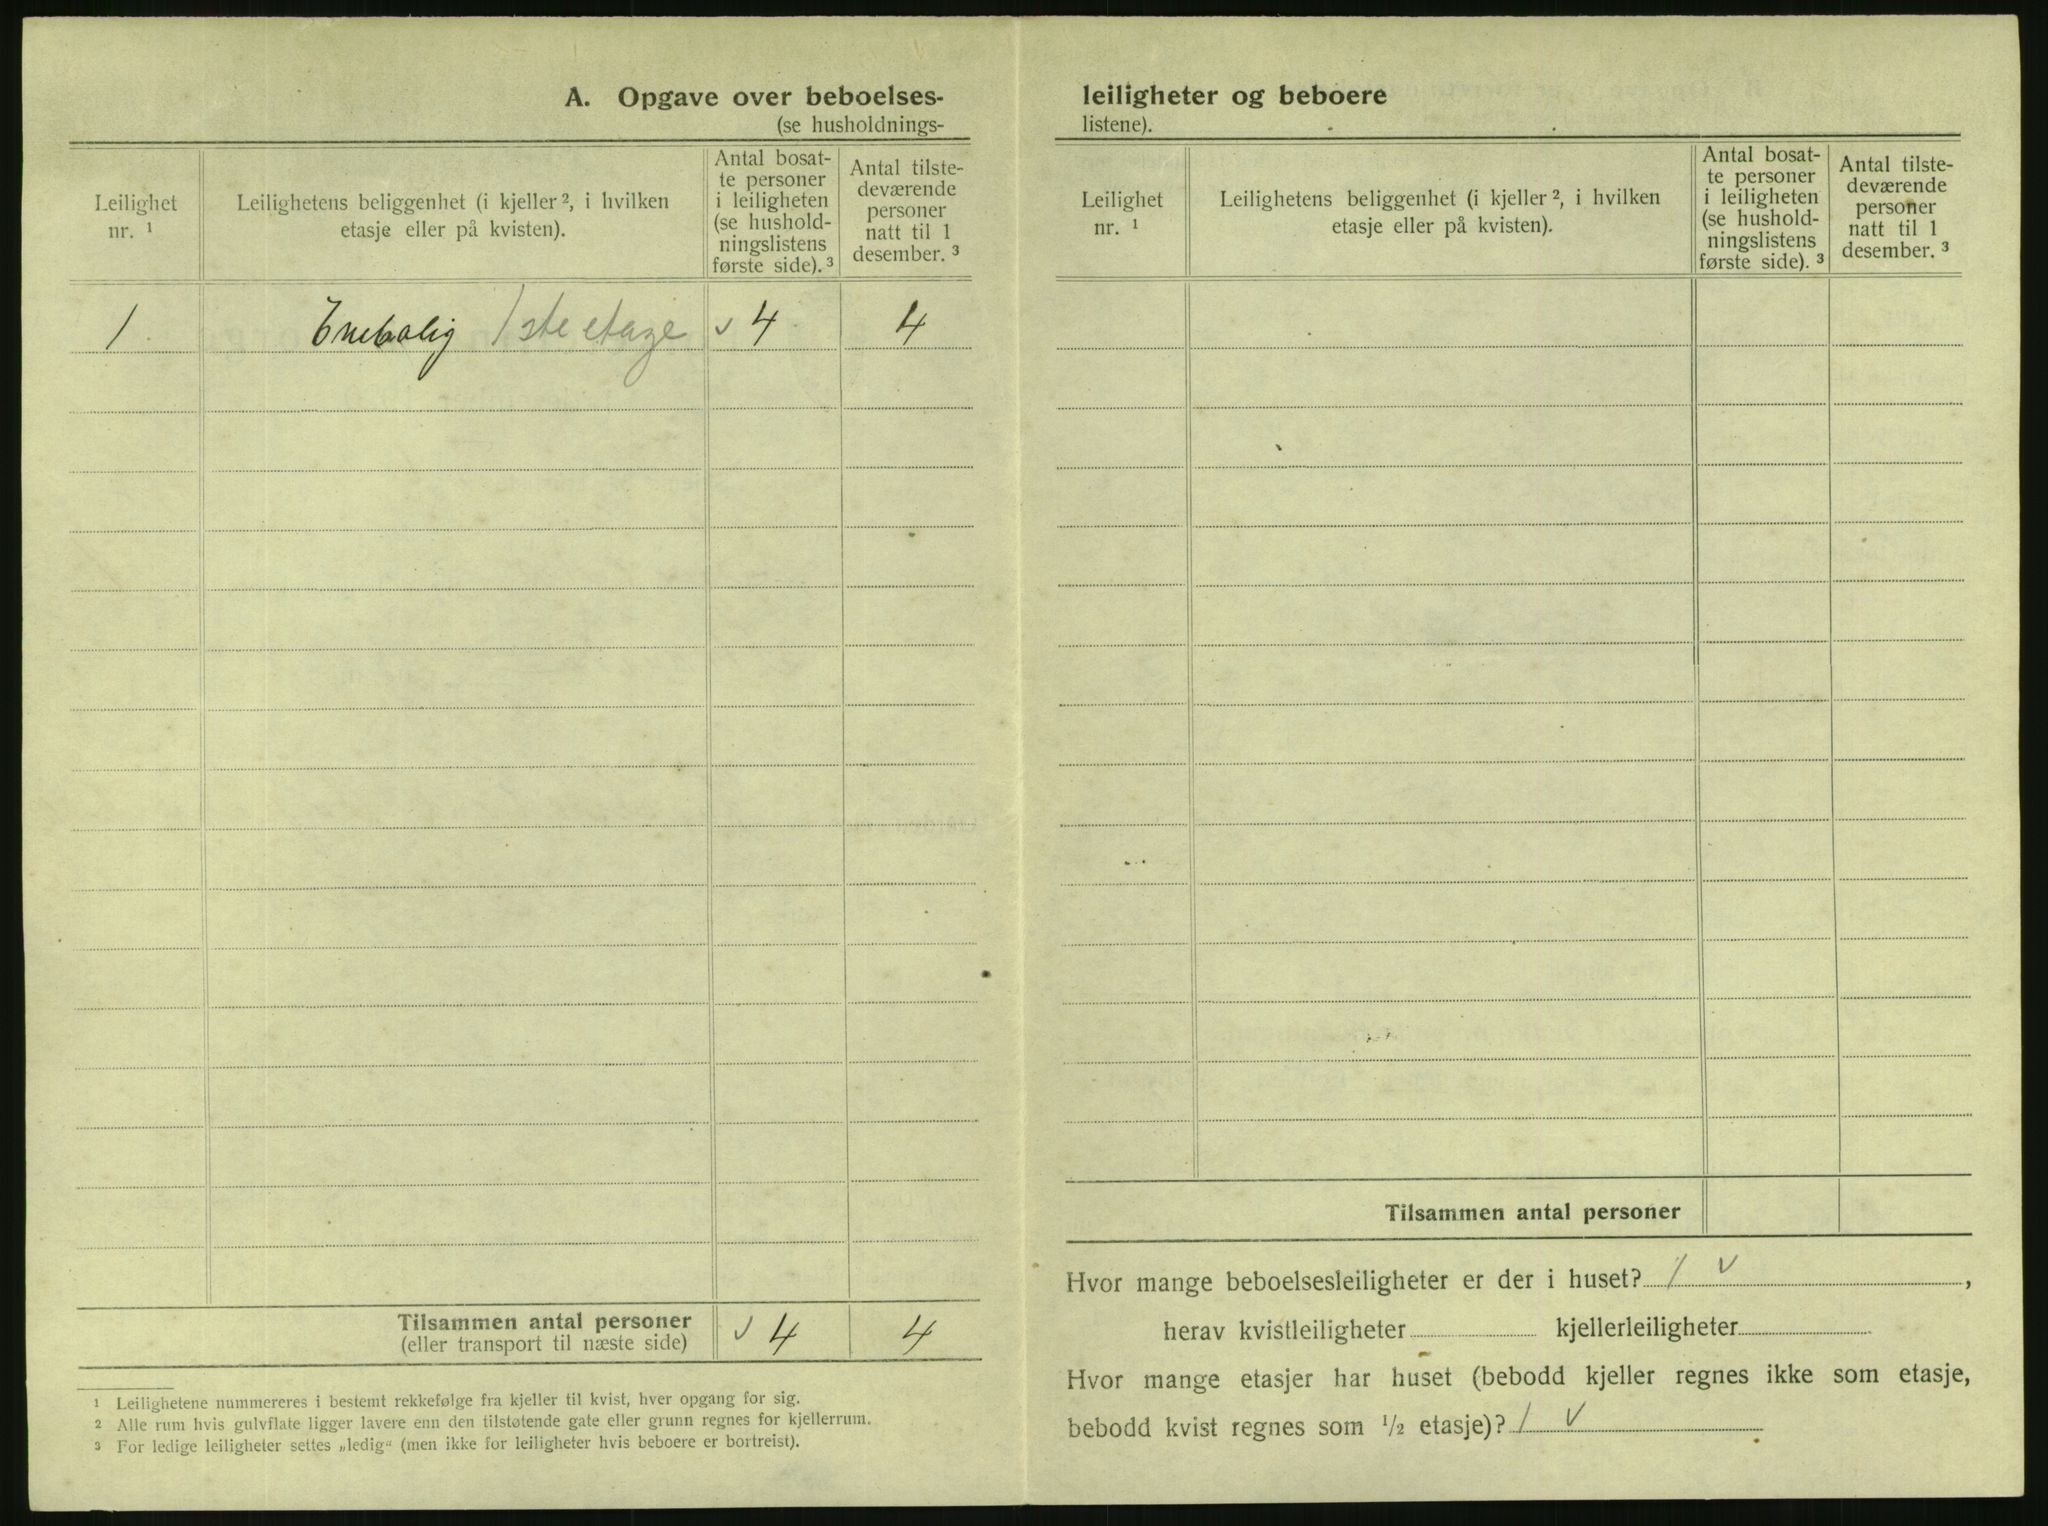 A. Opgave over beboelses-
(se husholdnings-
Leilighet
nr. ¹
Leilighetens beliggenhet (i kjeller ², i hvilken
etasje eller på kvisten).
Antal bosat-
te personer
i leiligheten
(se hushold-
ningslistens
første side). ³
Antal tilste-
deværende
personer
natt til 1
desember. ³
1 Enebolig 1ste etage v 4 4
Tilsammen antal personer
(eller transport til næste side)
v 4 4
¹ Leilighetene nummereres i bestemt rekkefølge fra kjeller til kvist, hver opgang for sig.
² Alle rum hvis gulvflate ligger lavere enn den tilstøtende gate eller grunn regnes for kjellerrum.
³ For ledige leiligheter settes „ledig“ (men ikke for leiligheter hvis beboere er bortreist).
leiligheter og beboere
listene).
Leilighet
nr. ¹
Leilighetens beliggenhet (i kjeller ², i hvilken
etasje eller på kvisten).
Antal bosat-
te personer
i leiligheten
(se hushold-
ningslistens
første side). ³
Antal tilste-
deværende
personer
natt til 1
desember. ³
Tilsammen antal personer
Hvor mange beboelsesleiligheter er der i huset? 1 v ,
herav kvistleiligheter kjellerleiligheter
Hvor mange etasjer har huset (bebodd kjeller regnes ikke som etasje,
bebodd kvist regnes som ½ etasje)? 1 v